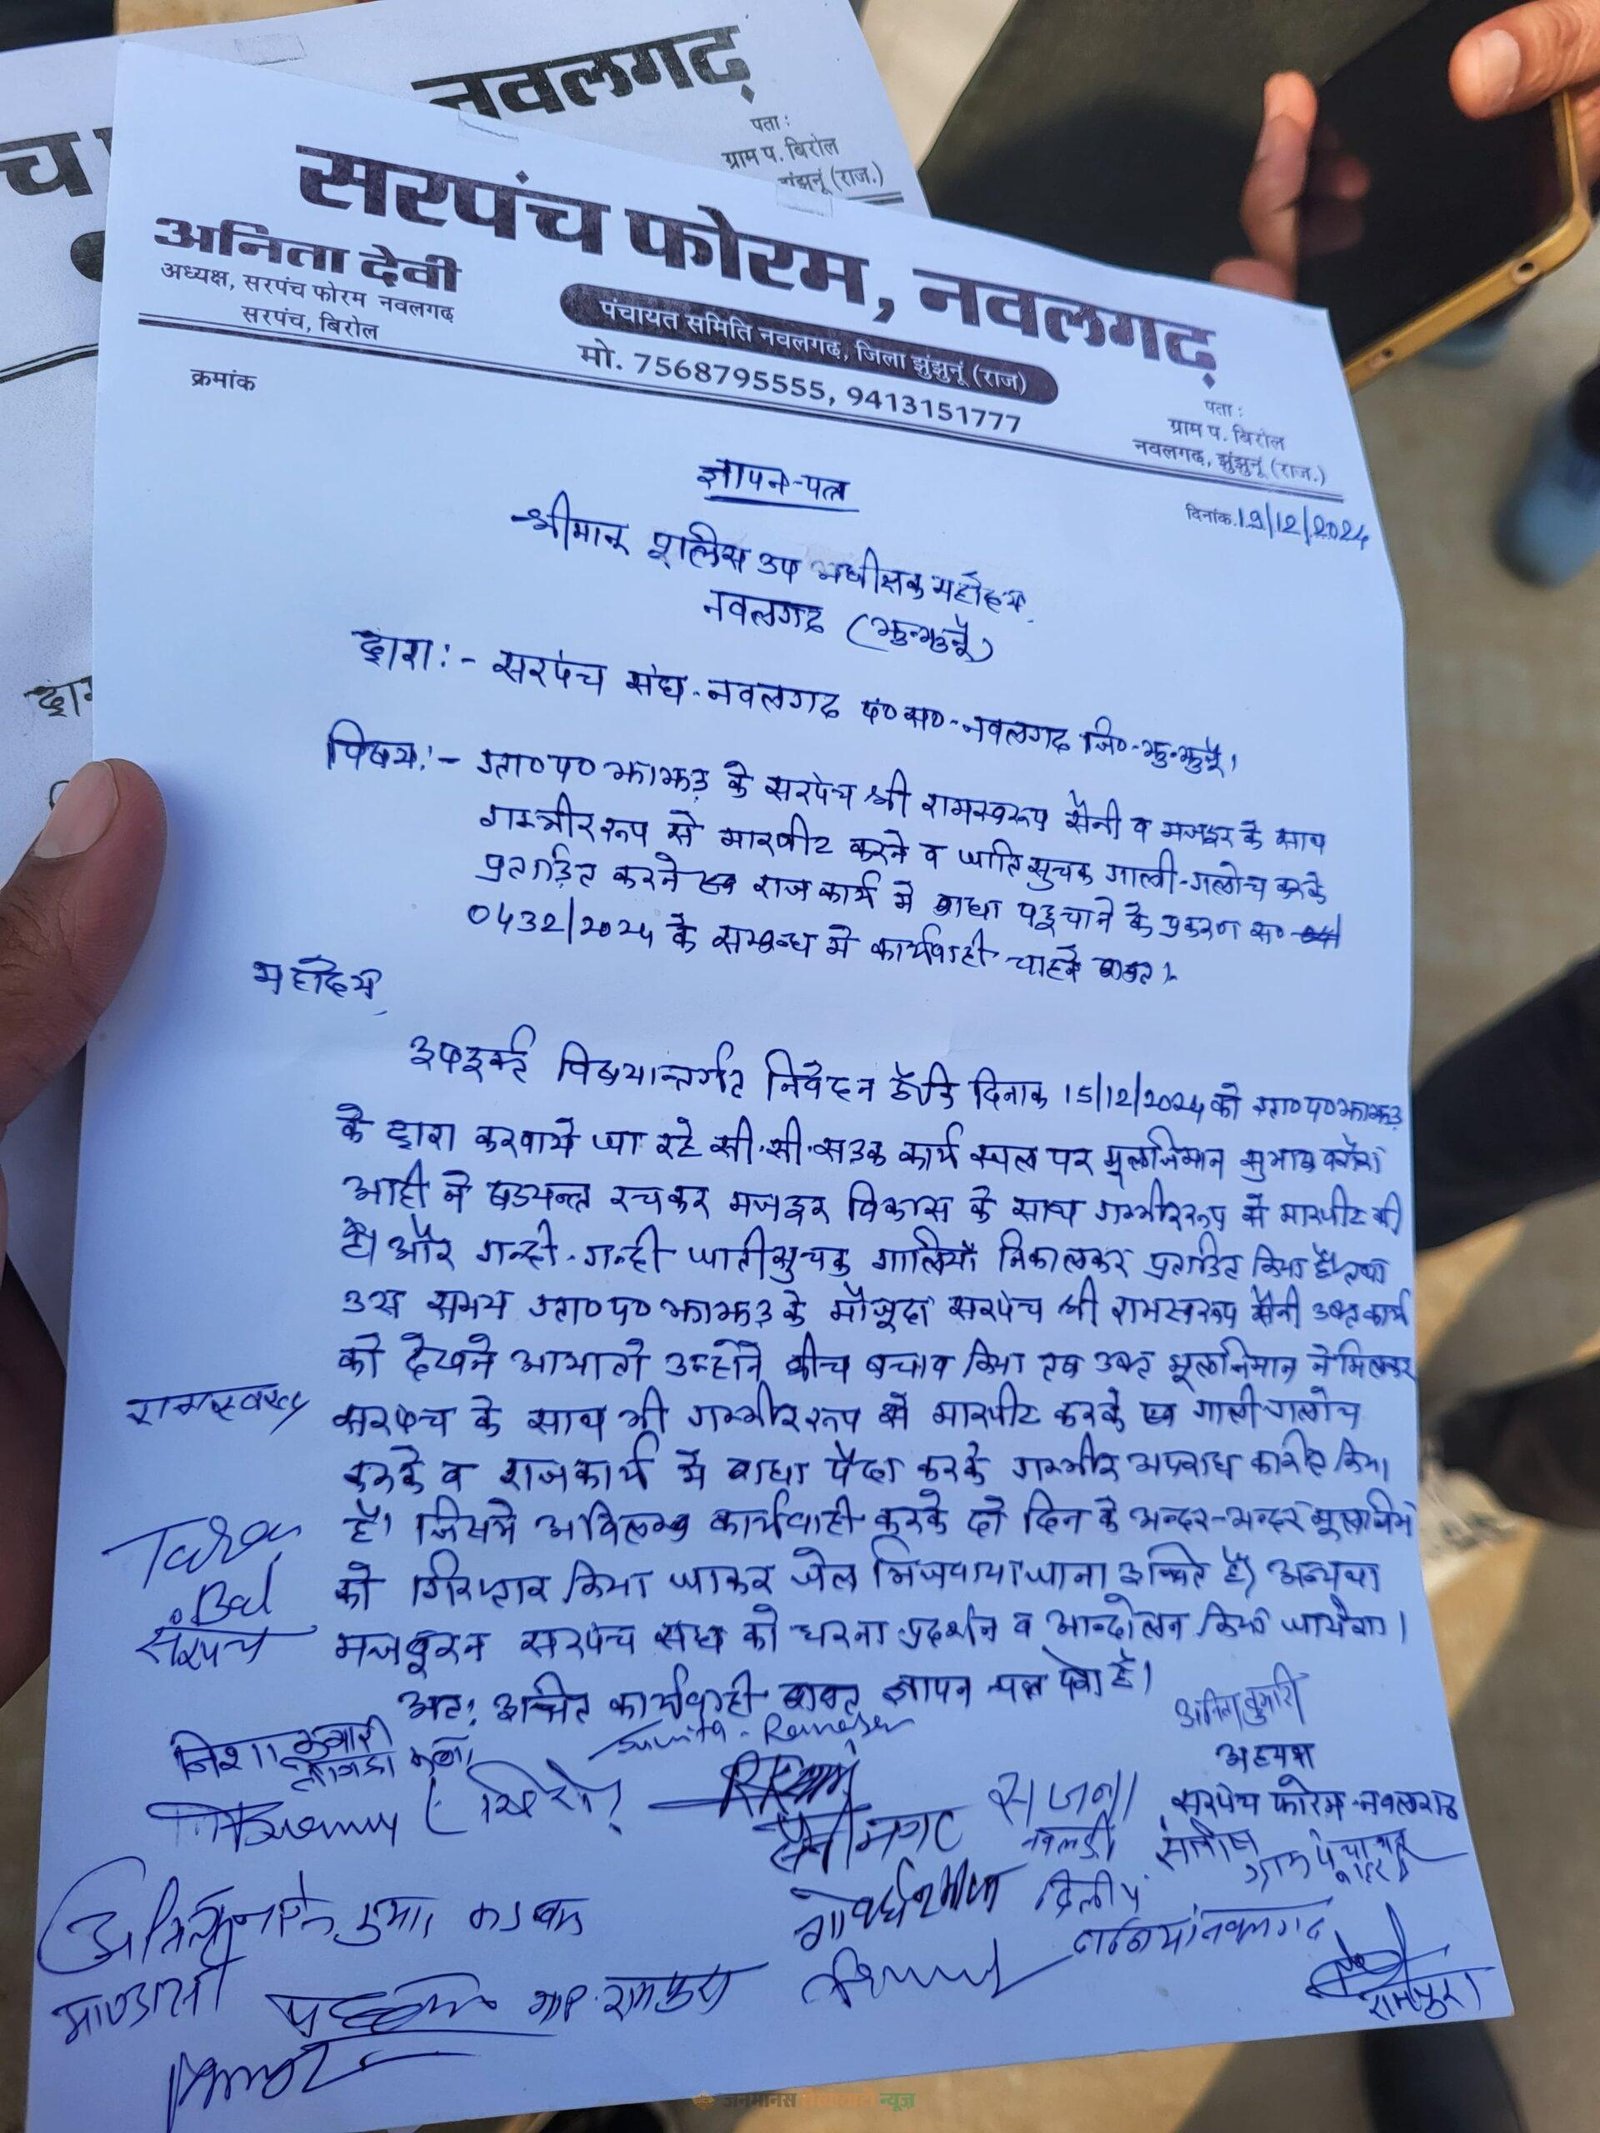 नवलगढ़
पता :
ग्राम प. बिरोल
झुंझनूं (राज.)
सरपंच फोरम, नवलगढ़
अनिता देवी
अध्यक्ष, सरपंच फोरम नवलगढ़
सरपंच, बिरोल
पंचायत समिति नवलगढ़, जिला झुंझुनूं (राज)
मो. 7568795555, 9413151777
क्रमांक
पता :
ग्राम प. बिरोल
नवलगढ़, झुंझुनूं (राज.)
दिनांक 19/12/2024
ज्ञापन-पत्र
श्रीमान् पुलिस उप अधीक्षक महोदय,
नवलगढ़ (झुन्झुनूं)
द्वारा :- सरपंच संघ-नवलगढ़ पं०स०-नवलगढ़ जि०-झुन्झुनूं।
विषय :- ग्रा०प० झाझड़ के सरपंच श्री रामस्वरूप सैनी व मजदूर के साथ
गम्भीर रूप से मारपीट करने व जातिसूचक गाली-गलोच करके
प्रताड़ित करने एवं राजकार्य में बाधा पहुचाने के प्रकरण स०
0432/2024 के सम्बन्ध में कार्यवाही चाहने बाबत।
महोदय,
उपरोक्त विषयान्तर्गत निवेदन है कि दिनाक 15/12/2024 को ग्रा०प० झाझड़
के द्वारा करवाये जा रहे सी.सी.सड़क कार्य स्थल पर मूलजिमान सुभाष
आदी ने षडयन्त्र रचकर मजदूर विकास के साथ गम्भीर रूप से मारपीट की
है। और गन्दी-गन्दी जातीसुचक गालियाँ निकालकर प्रताडित किया है तथा
उस समय ग्रा०प० झाझड़ के मौजूदा सरपंच श्री रामस्वरूप सैनी उक्त कार्य
को देखने आया तो उन्होंने बीच बचाव किया एवं उक्त मूलजिमान ने मिलकर
सरपंच के साथ भी गम्भीर रूप से मारपीट करके एवं गाली गलोच
करके व राजकार्य में बाधा पैदा करके गम्भीर अपराध कारीत किया
है। जिसमे अविलम्ब कार्यवाही करके दो दिन के अन्दर-अन्दर मूलजिम
को गिरफ्तार किया जाकर जेल भिजवाया जाना उचित है। अन्यथा
मजबूरन सरपंच संघ को धरना प्रदर्शन व आन्दोलन किया जायेगा।
अतः उचित कार्यवाही बाबत ज्ञापन पत्र पेश है।
रामस्वरूप
Tara
सरपंच
निशा कुमारी
Sunita
अनिता कुमारी
अध्यक्ष
सरपंच फोरम-नवलगढ़
संतोष
ग्राम पंचायत
गोवर्धन
दिलीप
रामपुरा
जनमानस शेखावाटी न्यूज़